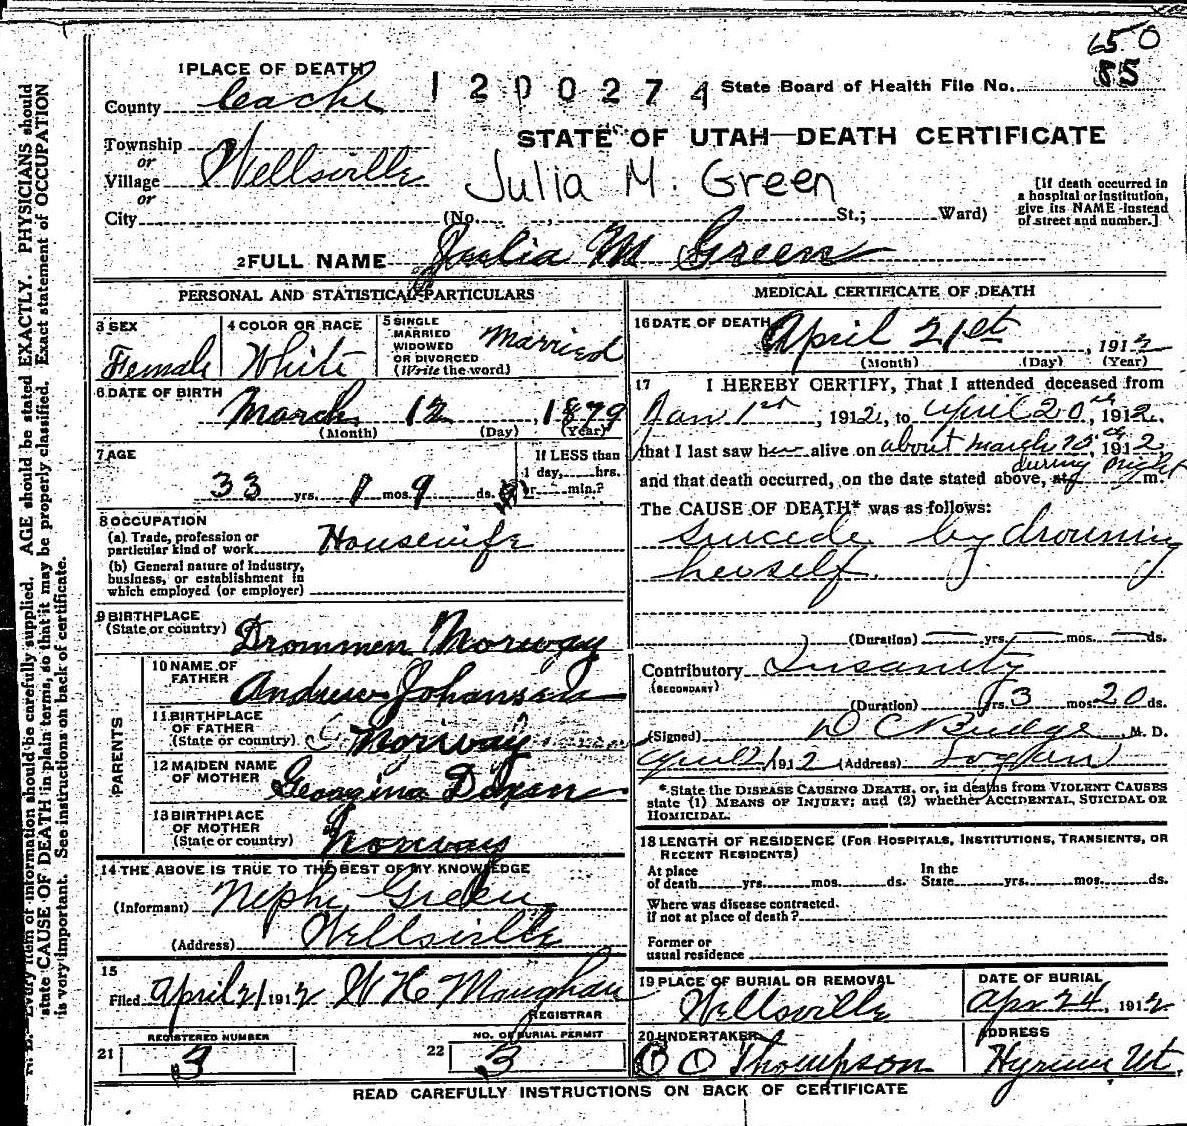 650
85
1 PLACE OF DEATH
1 2 0 0 2 7 4 State Board of Health File No.
County Cache
STATE OF UTAH—DEATH CERTIFICATE
Township
or
Village Wellsville
or
City
Julia M. Green
(No. , St.; Ward)
[If death occurred in
a hospital or institution,
give its NAME instead
of street and number.]
2 FULL NAME Julia M Green
PERSONAL AND STATISTICAL PARTICULARS
3 SEX Female
4 COLOR OR RACE White
5 SINGLE
MARRIED
WIDOWED
OR DIVORCED
(Write the word) Married
6 DATE OF BIRTH
March 12, 1879
(Month) (Day) (Year)
7 AGE
33 yrs. 1 mos. 9 ds.
If LESS than
1 day, hrs.
or min.?
8 OCCUPATION
(a) Trade, profession or
particular kind of work Housewife
(b) General nature of industry,
business, or establishment in
which employed (or employer)
9 BIRTHPLACE
(State or country) Drommen Norway
PARENTS
10 NAME OF
FATHER Andrew Johansen
11 BIRTHPLACE
OF FATHER
(State or country) Norway
12 MAIDEN NAME
OF MOTHER Georgina Dixen
13 BIRTHPLACE
OF MOTHER
(State or country) Norway
14 THE ABOVE IS TRUE TO THE BEST OF MY KNOWLEDGE
(Informant) Nephi Green
(Address) Wellsville
15
Filed April 21 1912 W H Maughan
REGISTRAR
REGISTERED NUMBER
21 3
NO. OF BURIAL PERMIT
22 3
MEDICAL CERTIFICATE OF DEATH
16 DATE OF DEATH
April 21st, 1912
(Month) (Day) (Year)
17 I HEREBY CERTIFY, That I attended deceased from
Jan 1st, 1912, to April 20th, 1912,
that I last saw her alive on about March 25th, 1912,
during night
and that death occurred, on the date stated above, at m.
The CAUSE OF DEATH* was as follows:
Suicide by drowning
herself.
(Duration) yrs. mos. ds.
Contributory Insanity
(SECONDARY)
(Duration) yrs. 3 mos. 20 ds.
(Signed) D C Budge, M. D.
April 21 1912 (Address) Logan
*State the DISEASE CAUSING DEATH, or, in deaths from VIOLENT CAUSES
state (1) MEANS OF INJURY; and (2) whether ACCIDENTAL, SUICIDAL OR
HOMICIDAL.
18 LENGTH OF RESIDENCE (FOR HOSPITALS, INSTITUTIONS, TRANSIENTS, OR
RECENT RESIDENTS)
At place
of death yrs. mos. ds.
In the
State yrs. mos. ds.
Where was disease contracted.
if not at place of death?
Former or
usual residence
19 PLACE OF BURIAL OR REMOVAL
Wellsville
DATE OF BURIAL
Apr 24, 1912
20 UNDERTAKER
O O Thompson
ADDRESS
Hyrum Ut.
READ CAREFULLY INSTRUCTIONS ON BACK OF CERTIFICATE
Every item of information should be carefully supplied. AGE should be stated EXACTLY. PHYSICIANS should
state CAUSE OF DEATH in plain terms, so that it may be properly classified. Exact statement of OCCUPATION
is very important. See instructions on back of certificate.